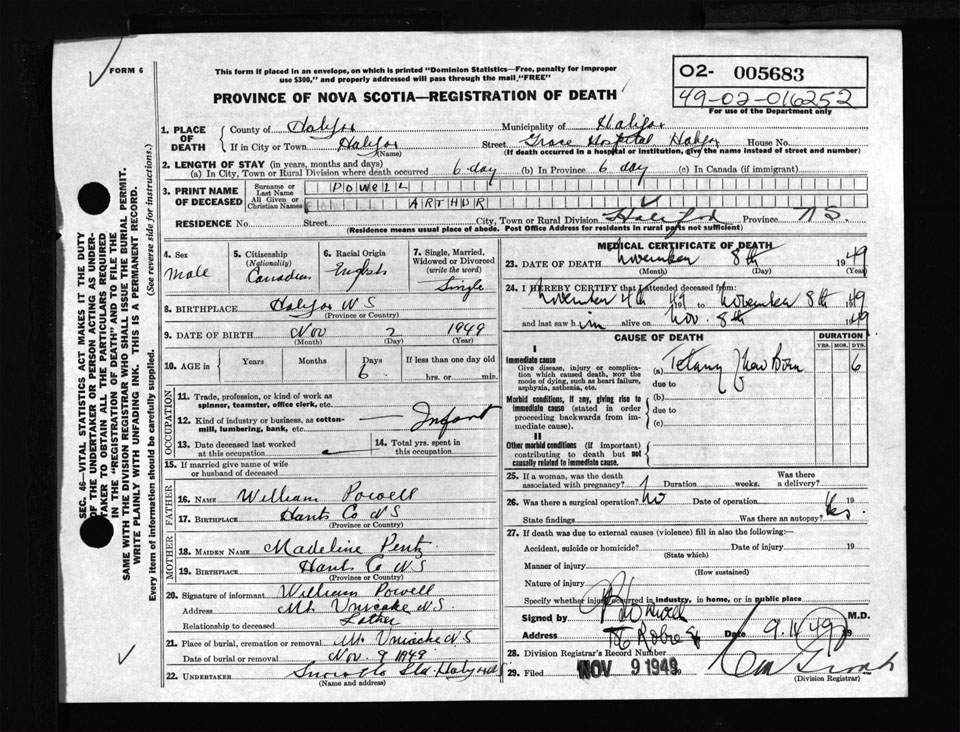 FORM 6
This form if placed in an envelope, on which is printed "Dominion Statistics—Free, penalty for improper
use $300," and properly addressed will pass through the mail "FREE"
PROVINCE OF NOVA SCOTIA—REGISTRATION OF DEATH
02- 005683
49-02-016252
For use of the Department only
1. PLACE OF DEATH
County of Halifax Municipality of Halifax
If in City or Town Halifax (Name) Street Grace Hospital Halifax House No.
(If death occurred in a hospital or institution, give the name instead of street and number)
2. LENGTH OF STAY (in years, months and days)
(a) In City, Town or Rural Division where death occurred 6 day (b) In Province 6 day (c) In Canada (if immigrant)
3. PRINT NAME OF DECEASED
Surname or Last Name POWELL
All Given or Christian Names ARTHUR
RESIDENCE No. Street City, Town or Rural Division Halifax Province N.S.
(Residence means usual place of abode. Post Office Address for residents in rural parts not sufficient)
SEC. 46—VITAL STATISTICS ACT MAKES IT THE DUTY
OF THE UNDERTAKER OR PERSON ACTING AS UNDER-
TAKER TO OBTAIN ALL THE PARTICULARS REQUIRED
IN THE "REGISTRATION OF DEATH" AND TO FILE THE
SAME WITH THE DIVISION REGISTRAR WHO SHALL ISSUE THE BURIAL PERMIT.
WRITE PLAINLY WITH UNFADING INK. THIS IS A PERMANENT RECORD.
Every item of information should be carefully supplied. (See reverse side for instructions.)
4. Sex
Male
5. Citizenship
(Nationality)
Canadian
6. Racial Origin
English
7. Single, Married,
Widowed or Divorced
(write the word)
Single
8. BIRTHPLACE Halifax N S
(Province or Country)
9. DATE OF BIRTH Nov 2 1949
(Month) (Day) (Year)
10. AGE in Years Months Days If less than one day old
6 hrs. or min.
OCCUPATION
11. Trade, profession, or kind of work as
spinner, teamster, office clerk, etc.
12. Kind of industry or business, as cotton-
mill, lumbering, bank, etc. Infant
13. Date deceased last worked
at this occupation
14. Total yrs. spent in
this occupation
15. If married give name of wife
or husband of deceased
FATHER
16. NAME William Powell
17. BIRTHPLACE Hants Co N S
(Province or Country)
MOTHER
18. MAIDEN NAME Madeline Pentz
19. BIRTHPLACE Hants Co N S
(Province or Country)
20. Signature of informant William Powell
Address Mt. Uniacke N.S.
Relationship to deceased Father
21. Place of burial, cremation or removal Mt. Uniacke N S
Date of burial or removal Nov 9 1949
22. UNDERTAKER
(Name and address)
MEDICAL CERTIFICATE OF DEATH
23. DATE OF DEATH November 8th 1949
(Month) (Day) (Year)
24. I HEREBY CERTIFY that I attended deceased from:
November 4th 49 to November 8th 1949
and last saw him alive on Nov. 8th 1949
CAUSE OF DEATH
DURATION
YRS. MOS. DYS.
I
Immediate cause
Give disease, injury or compli-
cation which caused death, NOT the
mode of dying, such as heart failure,
asphyxia, asthenia, etc.
(a) Tetany of New Born 6
due to
Morbid conditions, if any, giving rise to
immediate cause (stated in order
proceeding backwards from im-
mediate cause).
(b)
due to
(c)
II
Other morbid conditions (if important)
contributing to death but not
causally related to immediate cause.
25. If a woman, was the death
associated with pregnancy? Duration weeks. Was there
a delivery?
26. Was there a surgical operation? No Date of operation 19
State findings Was there an autopsy? Yes
27. If death was due to external causes (violence) fill in also the following:
Accident, suicide or homicide? Date of injury 19
(State which)
Manner of injury
(How sustained)
Nature of injury
Specify whether injury occurred in industry, in home, or in public place
Signed by M.D.
Address Date 19
28. Division Registrar's Record Number
29. Filed NOV 9 1949
(Division Registrar)